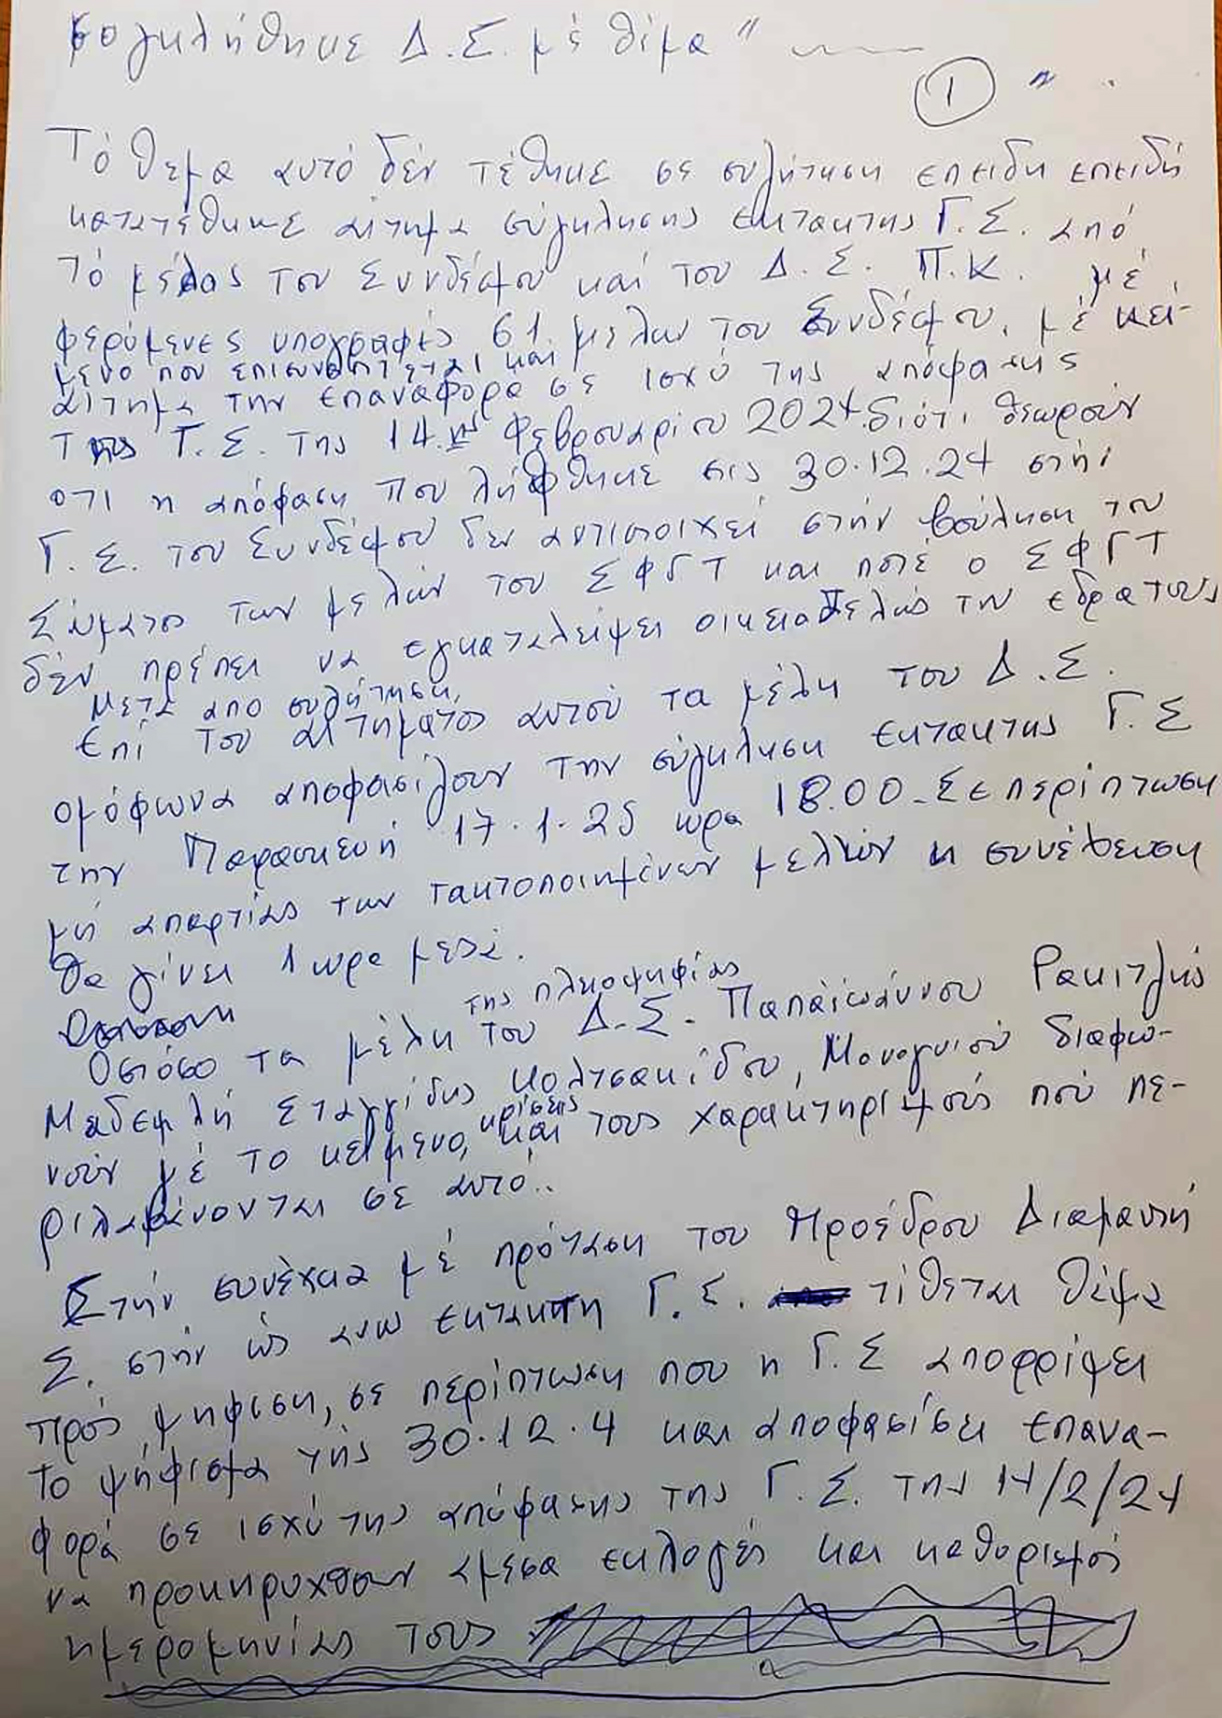 συγκλήθηκε Δ.Σ. μέ θέμα "
1 " .
Τό θέμα αυτό δέν τέθηκε σε συζήτηση επειδη επειδή
κατατέθηκε αίτημα σύγκλησης εκτακτης Γ.Σ. από
τό μέλος του Συνδέσμου καί του Δ.Σ. Π.Κ. μέ
φερόμενες υπογραφές 61 μελών του Συνδέσμου, μέ κεί-
μενο που επισυνάπτεται και
αίτημα την επαναφορα σε ισχύ της απόφασης
της Γ.Σ. της 14ης Φεβρουαρίου 2024 διότι θεωρούν
οτι η απόφαση που λήφθηκε στις 30.12.24 στήν
Γ.Σ. του Συνδέσμου δεν αντιστοιχεί στήν βούληση του
Σώματο των μελών του ΣΦΓΤ και ποτέ ο ΣΦΓΤ
δέν πρέπει να εγκαταλείψει οικειοθελώς την εδρα τους
Μετά από συζήτηση,
Επί του αιτήματος αυτού τα μέλη του Δ.Σ.
ομόφωνα αποφασίζουν την σύγκληση εκτακτης Γ.Σ
την Παρασκευή 17.1.25 ωρα 18.00. Σε περίπτωση
μή απαρτίας των τακτοποιημένων μελλών η συνέλευση
θα γίνει 1 ωρα μετά.
της πλειοψηφίας
Οστόσο τα μέλη του Δ.Σ. Παπαϊωάννου Ρακιτζής
Μαδεμλή Σταγγίδης Κολτσακίδου, Μουογυιού διαφω-
κρίσεις
νούν μέ το κείμενο, και τους χαρακτηρισμούς πού πε-
ριλαμβάνονται σε αυτό..
Στήν συνέχεια μέ πρόταση του Προέδρου Διαμαντή
Σ. στήν ώς ανω εκτακτη Γ.Σ. τίθεται θέμα
πρός ψήφιση, σε περίπτωση που η Γ.Σ απορρίψει
το ψήφισμα τής 30.12.4 και αποφασίσει επανα-
φορά σε ισχύ της απόφασης της Γ.Σ. της 14/2/24
να προκηρυχθούν αμεσα εκλογές και καθορισμός
ημερομηνίας τους